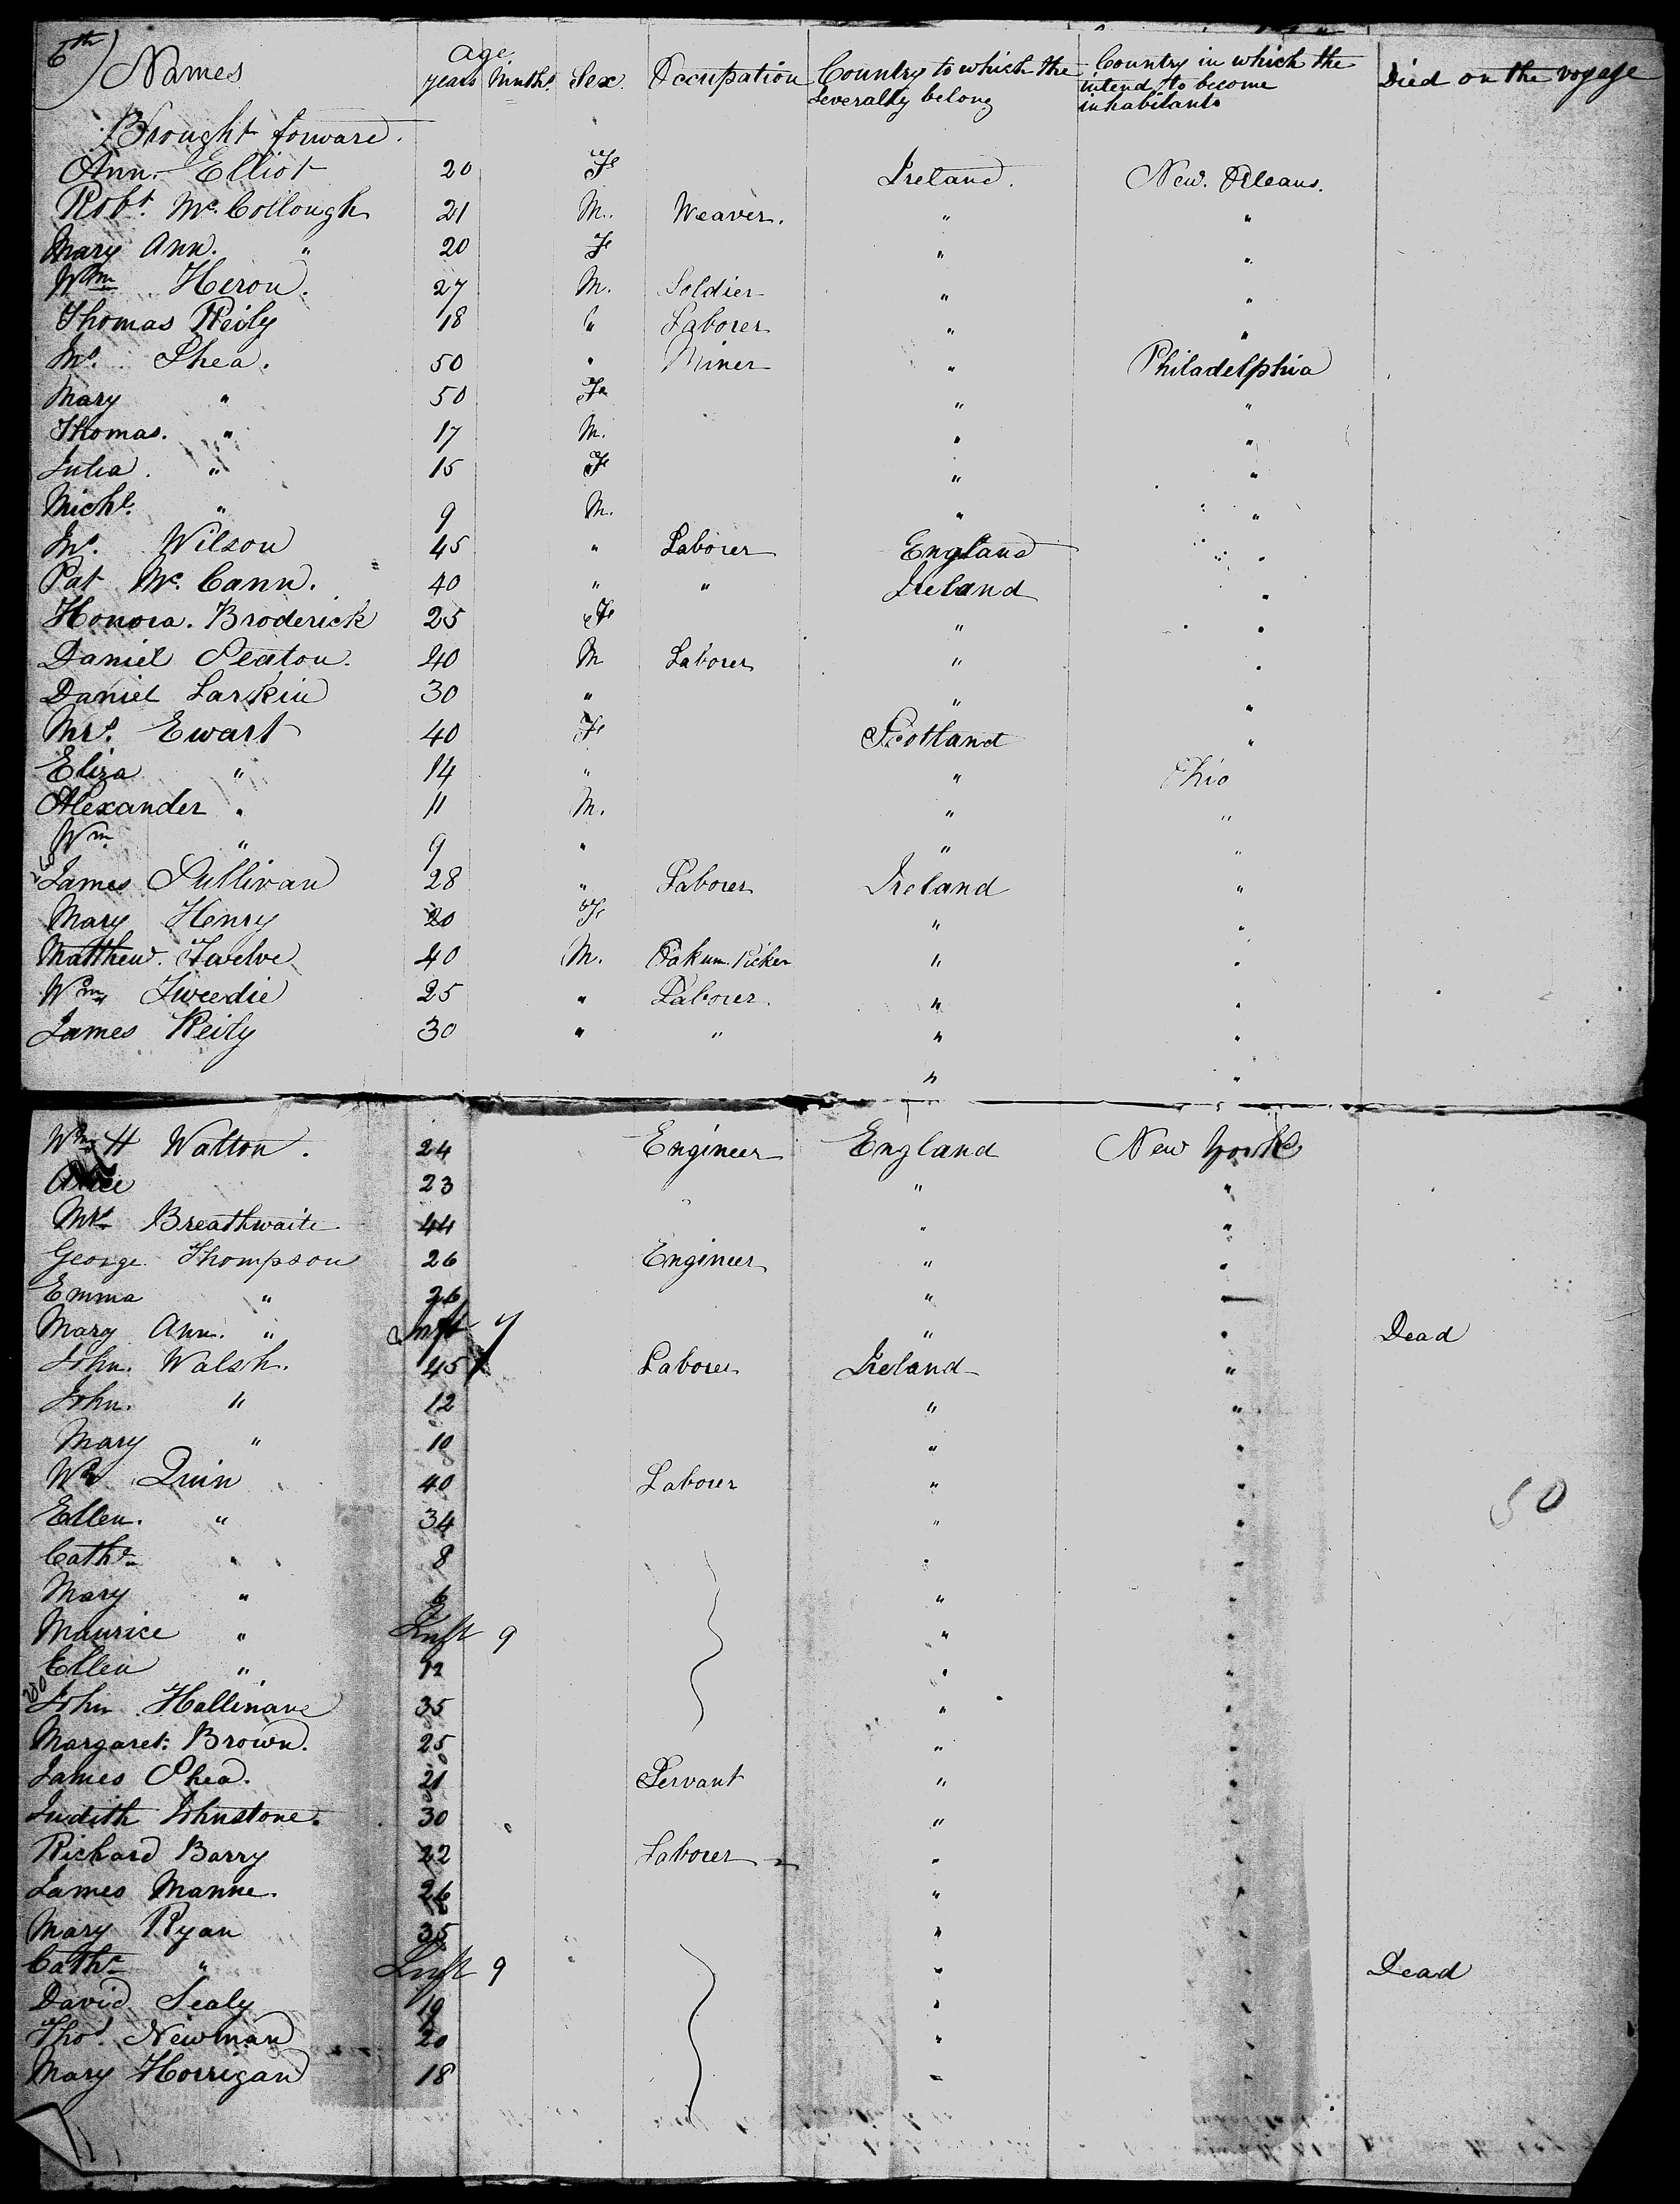 6th) Names age years Months Sex. Occupation Country to which the severally belong Country in which the intend to become inhabitants Died on the voyage
Brought forward.
Ann. Elliot 20 Fe Ireland. New. Orleans.
Robt. Mc. Collough 21 M. Weaver. " "
Mary Ann. " 20 Fe " "
Wm Heron. 27 M. Soldier " "
Thomas Reily 18 " Laborer " "
Jno. Shea. 50 " Miner " Philadelphia
Mary " 50 Fe " "
Thomas. " 17 M. " "
Julia. " 15 Fe " "
Michl. " 9 M. " "
Jno. Wilson 45 " Laborer England "
Pat Mc. Cann. 40 " " Ireland "
Honora. Broderick 25 Fe " "
Daniel Seaton. 40 M Laborer " "
Daniel Larkin 30 " " "
Mrs. Ewart 40 Fe Scotland "
Eliza " 14 " " Ohio
Alexander " 11 M. " "
Wm " 9 " " "
James Sullivan 28 " Laborer Ireland "
Mary Henry 20 Fe " "
Matthew. Twelve 40 M. Oakum. Picker " "
Wm Tweedie 25 " Laborer. " "
James Reily 30 " " " "
" "
Wm H Watton. 24 Engineer England New York
23 " "
Mrs Breathwaite 44 " "
George Thompson 26 Engineer " "
Emma " 26 "
Mary Ann. " Inft " " Dead
John. Walsh. 45 Laborer Ireland "
John. " 12 " "
Mary " 10 " "
Wm Quin 40 Laborer " "
Ellen. " 34 " "
50
Cathe " 8 " "
Mary " 6 " "
Maurice " Inft 9 " "
Ellen " 12 " "
John Hallinane 35 " "
Margaret: Brown. 25 " "
James Shea. 21 Servant " "
Judith Johnstone. 30 " "
Richard Barry 22 Laborer " "
James Manne. 26 " "
Mary Ryan 35 " "
Cathe " Inft 9 " " Dead
David Sealy 19 " "
Thos. Newman 20 " "
Mary Horrigan 18 " "